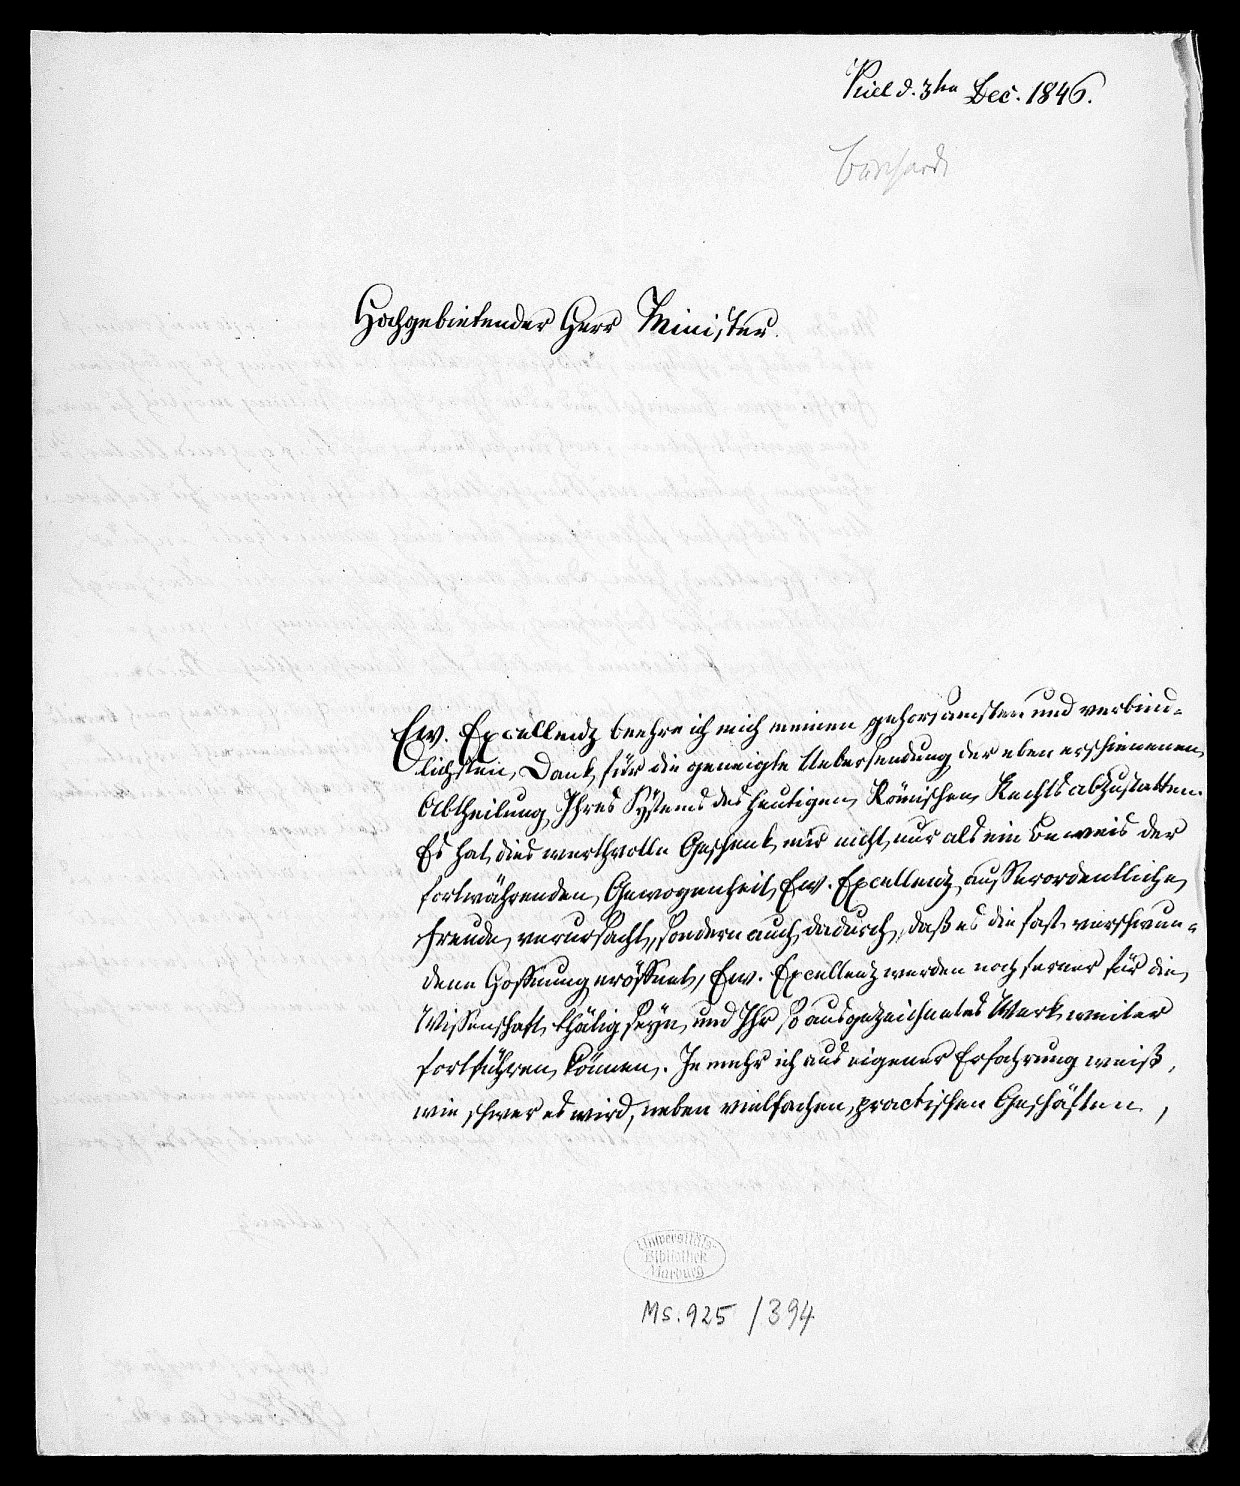 Kiel d. 3ten Dec. 1846.
Burchardi
Hochgebietender Herr Minister.
Ew. Excellenz beehre ich mich meinen gehorsamsten und verbind-
lichsten Dank für die geneigte Uebersendung der eben erschienenen
Abtheilung Ihres Systems des heutigen Römischen Rechts abzustatten.
Es hat dies werthvolle Geschenk mir nicht nur als ein Beweis der
fortwährenden Gewogenheit Ew. Excellenz ausserordentliche
Freude verursacht, sondern auch dadurch, daß es die fast verschwun-
dene Hoffnung eröffnet, Ew. Excellenz werden noch ferner für die
Wissenschaft thätig seyn und Ihr so ausgezeichnetes Werk weiter
fortführen können. Je mehr ich aus eigener Erfahrung weiß,
wie schwer es wird, neben vielfachen practischen Geschäften,
Universitäts-
Bibliothek
Marburg
Ms. 925 /394